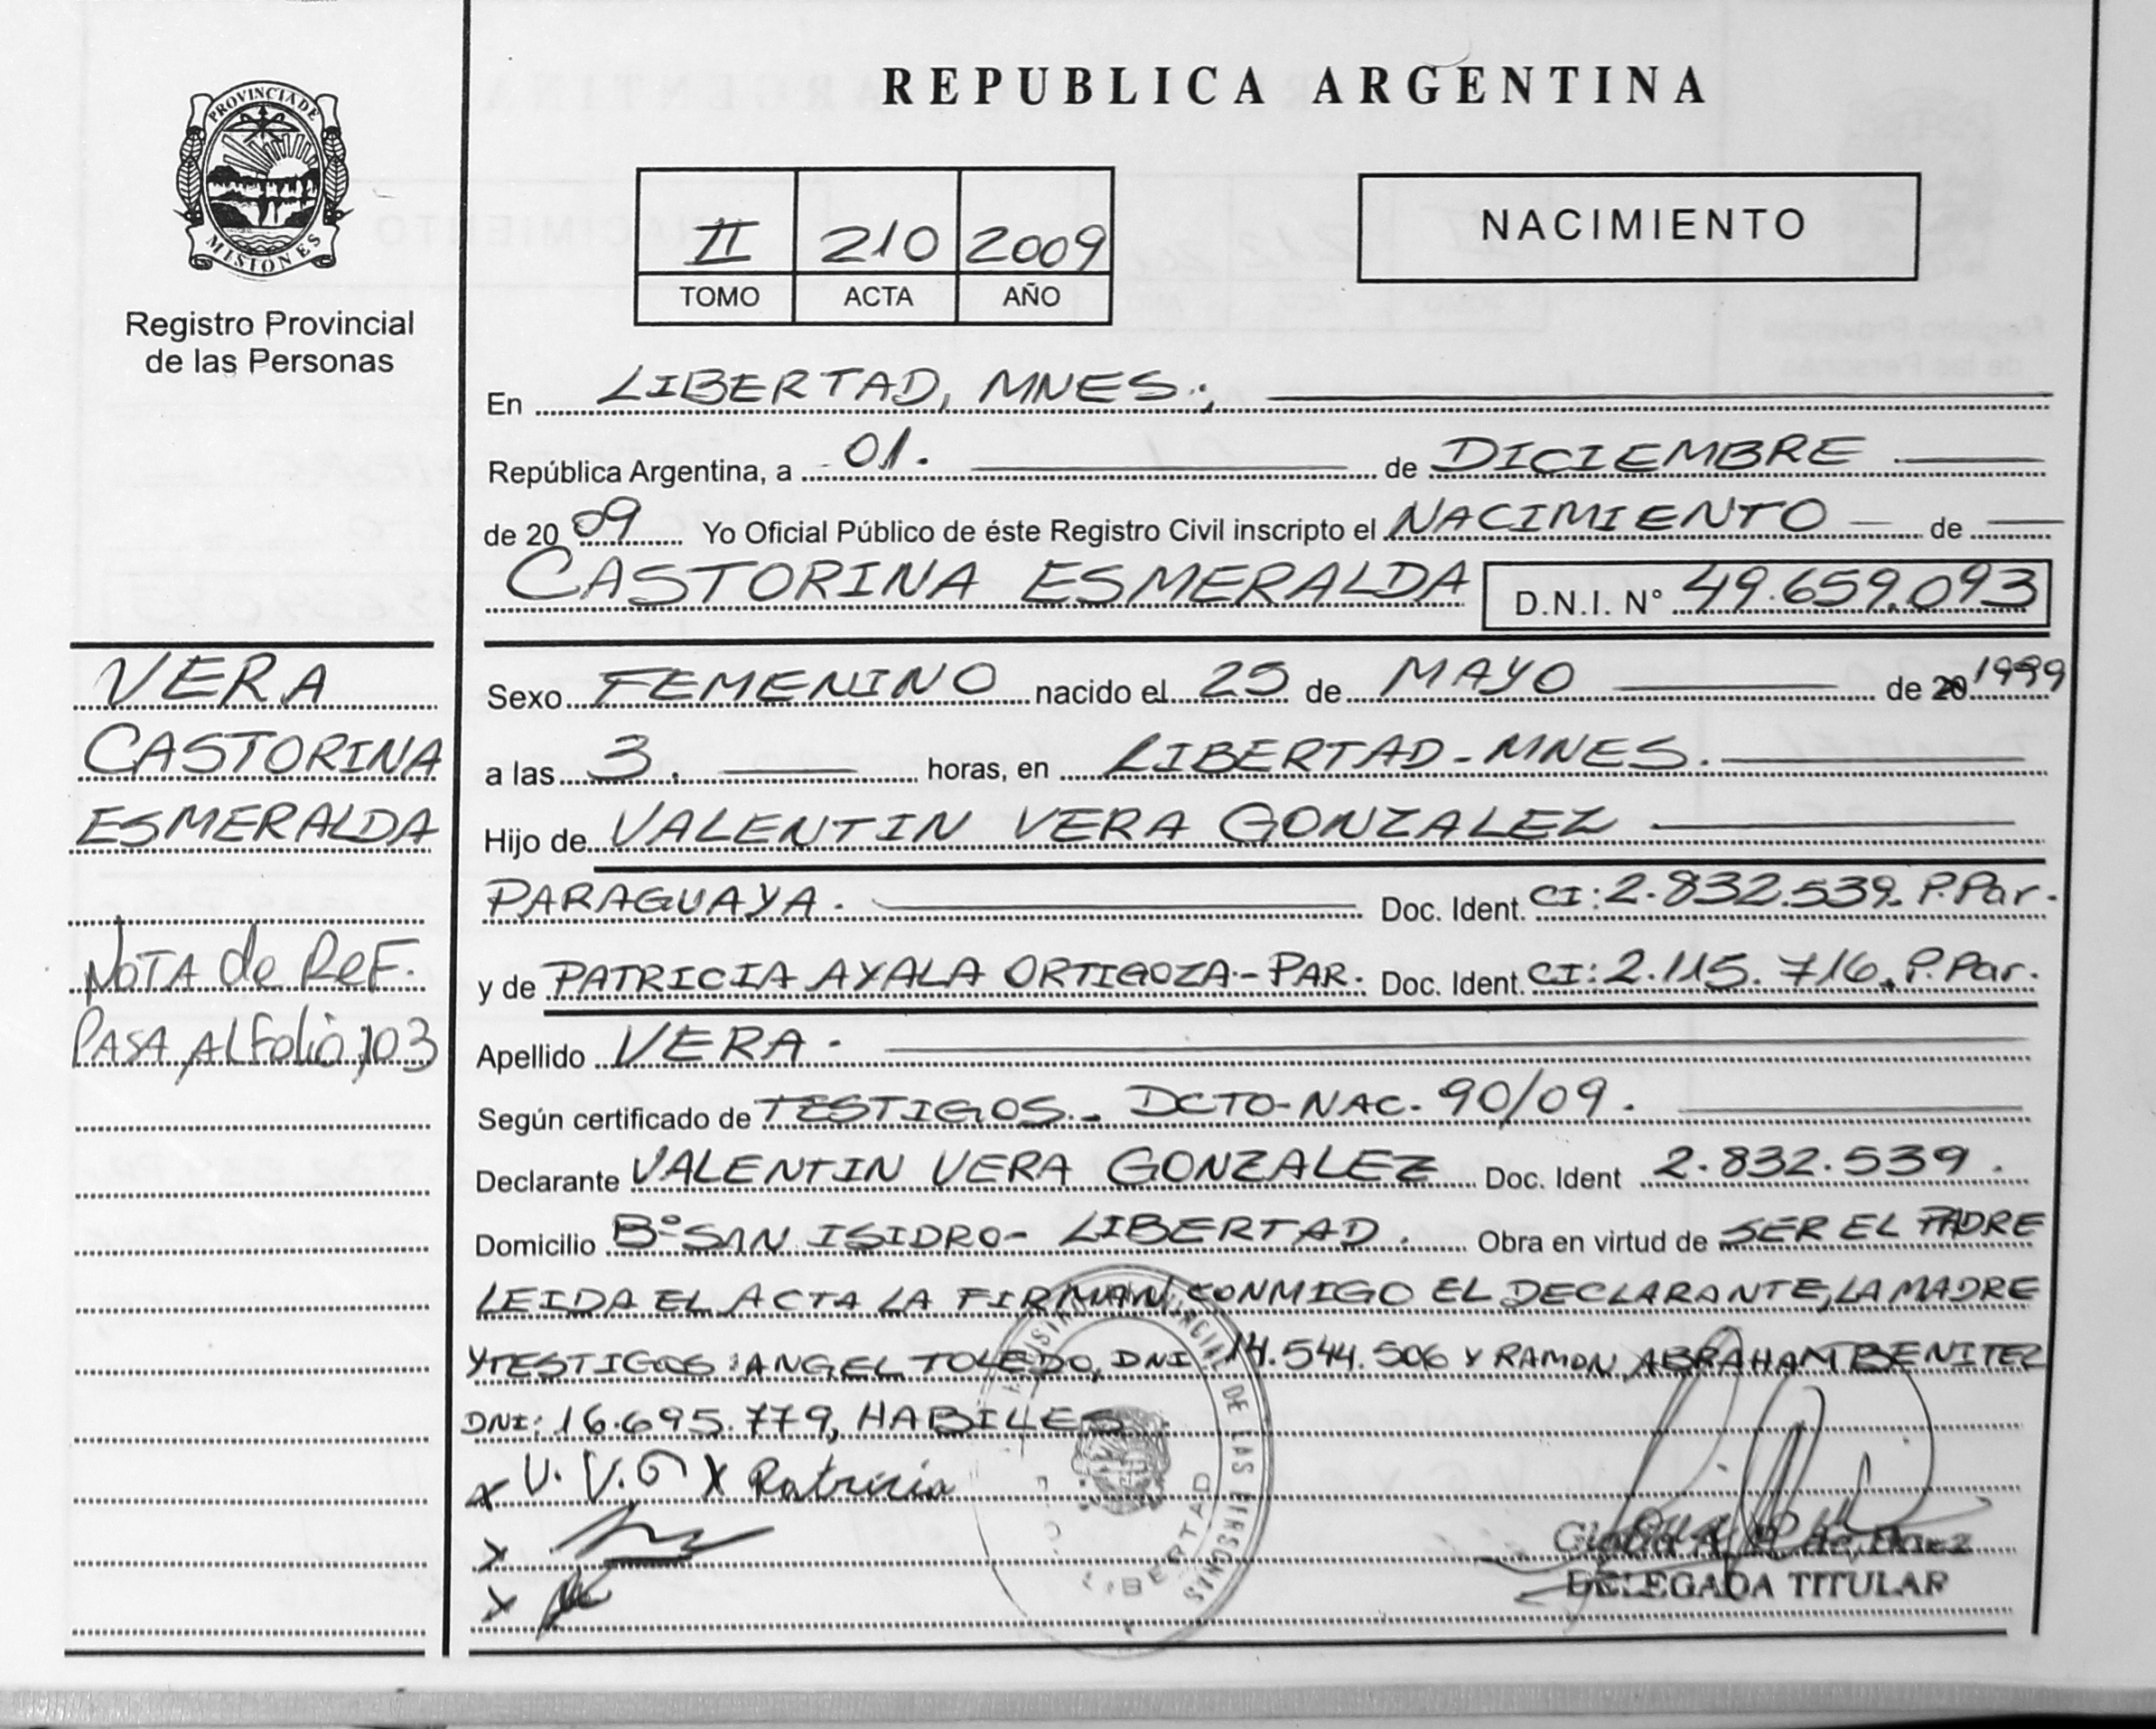 REPUBLICA ARGENTINA
PROVINCIA DE
MISIONES
Registro Provincial
de las Personas
II 210 2009
TOMO ACTA AÑO
NACIMIENTO
En LIBERTAD, MNES.,
República Argentina, a 01. de DICIEMBRE
de 20 09 Yo Oficial Público de éste Registro Civil inscripto el NACIMIENTO de
CASTORINA ESMERALDA D.N.I. N° 49.659.093
VERA
CASTORINA
ESMERALDA
NOTA de ReF.
PASA AL Folio 103
Sexo FEMENINO nacido el 25 de MAYO de 20 1999
a las 3. horas, en LIBERTAD-MNES.
Hijo de VALENTIN VERA GONZALEZ
PARAGUAYA. Doc. Ident. CI: 2.832.539. P.Par.
y de PATRICIA AYALA ORTIGOZA.-PAR. Doc. Ident. CI: 2.115.716. P.Par.
Apellido VERA.
Según certificado de TESTIGOS.- DCTO-NAC. 90/09.
Declarante VALENTIN VERA GONZALEZ Doc. Ident 2.832.539.
Domicilio B° SAN ISIDRO- LIBERTAD. Obra en virtud de SER EL PADRE
LEIDA EL ACTA LA FIRMAN, CONMIGO EL DECLARANTE, LA MADRE
Y TESTIGOS: ANGEL TOLEDO, DNI 14.544.506 Y RAMON ABRAHAM BENITEZ
DNI: 16.695.779, HABILES
x V.V.G X Patricia
x
x
DE LAS PERSONAS
LIBERTAD
DELEGADA TITULAR